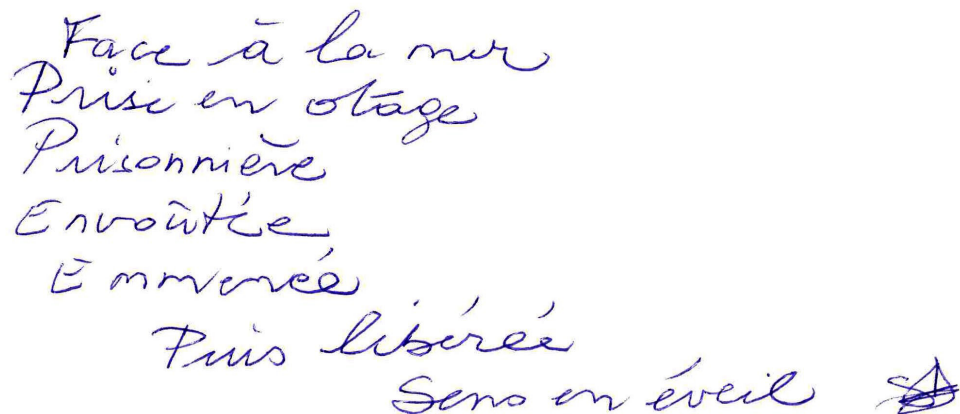 Face à la mer
Prise en otage
Prisonnière
Envoûtée
Emmenée
Puis libérée
Sens en éveil